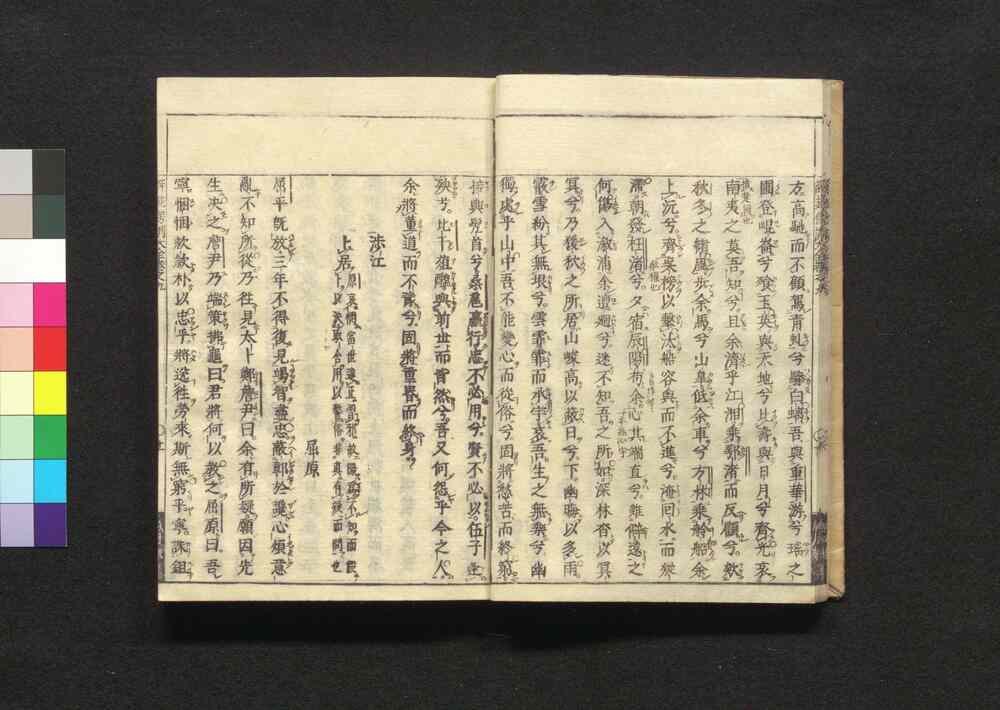 方高馳而不顧駕青虬兮驂白螭吾與重華游兮瑤之
圃登崐崙兮食玉英與天地兮比壽與日月兮齊光哀
南夷之莫吾知兮旦余濟乎江湘乘鄂渚而反顧兮欸
秋冬之緒風步余馬兮山皐低余車兮方林乘舲船余
上沅兮齊吳榜以擊汰船容與而不進兮淹回水而疑
滯朝發枉渚兮夕宿辰陽苟余心其端直兮雖僻遠之
何傷入漵浦余邅迴兮迷不知吾之所如深林杳以冥
冥兮乃猿狖之所居山峻高以蔽日兮下幽晦以多雨
霰雪紛其無垠兮雲霏霏而承宇哀吾生之無樂兮幽
獨處乎山中吾不能變心而從俗兮固將愁苦而終窮
接輿髠首兮桑扈臝行忠不必用兮賢不必以伍子逢
殃兮比干葅醢與前世而皆然兮吾又何怨乎今之人
余將董道而不豫兮固將重昏而終身
涉江
屈原
卜居
屈平既放三年不得復見竭智盡忠蔽鄣於讒心煩意
亂不知所從乃往見太卜鄭詹尹曰余有所疑願因先
生决之詹尹乃端策拂龜曰君將何以教之屈原曰吾
寧悃悃款款朴以忠乎將送往勞來斯無窮乎寧誅鉏